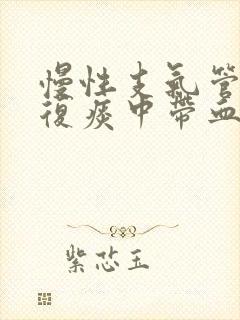 慢性支氣管
復痰中帶血
紫芯玉